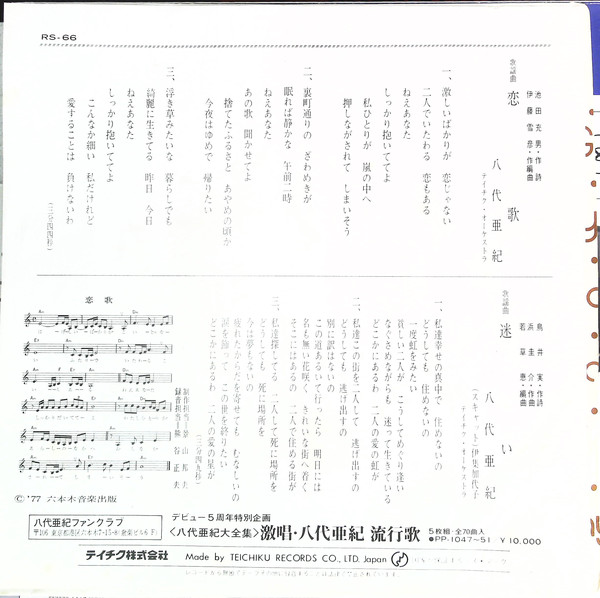 RS-66
歌謡曲
恋歌
池田充男・作詩
伊藤雪彦・作編曲
八代亜紀
テイチク・オーケストラ
一、激しいばかりが 恋じゃない
二人でいたわる 恋もある
ねえあなた
しっかり抱いててよ
私ひとりが 嵐の中へ
押しながされて しまいそう
二、裏町通りの ざわめきが
眠れば静かな 午前二時
ねえあなた
あの歌 聞かせてよ
捨てたふるさと あやめの頃か
今夜はゆめで 帰りたい
三、浮き草みたいな 暮らしでも
綺麗に生きてる 昨日 今日
ねえあなた
しっかり抱いててよ
こんなか細い 私だけれど
愛することは 負けないわ
(三分四四秒)
歌謡曲
迷い
鳥井実・作詩
浜圭介・作曲
若草恵・編曲
八代亜紀
(スキャット)伊集加代子
テイチク・オーケストラ
一、私達幸せの真中で 住めないの
どうしても 住めないの
一度虹をみたい
貧しい二人が こうしてめぐり逢い
なぐさめながらも 迷って生きている
どこかにあるわ 二人の愛の虹が
二、私達この街を二人して 逃げ出すの
どうしても 逃げ出すの
別に訳はないの
この道あるいて行ったら 明日には
名も無い花咲く きれいな街へ着く
そこにはあるの 二人で住める街が
三、私達探してる 二人して死に場所を
どうしても 死に場所を
今は夢もないの
疲れたからだを寄せても むなしいの
涙を飾って この世を終りたい
どこかにあるわ 二人の愛の星が
(三分四九秒)
恋歌
制作担当=景山邦夫
録音担当=熊谷正夫
©'77 六本木音楽出版
八代亜紀ファンクラブ
〒106 東京都港区六本木7-15-8(乗楽ビル6F)
デビュー5周年特別企画
〈八代亜紀大全集〉激唱・八代亜紀 流行歌
5枚組・全70曲入
●PP-1047~51 ¥10,000
テイチク株式会社
Made by TEICHIKU RECORDS CO., LTD. Japan